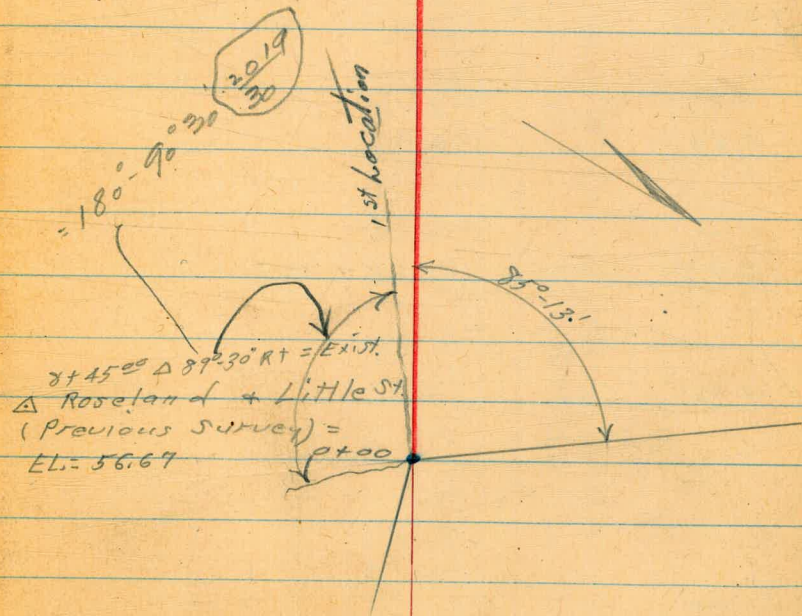 2019
30
= 180° - 90° 30'
1st Location
85°-13'
8+45⁰⁰ Δ 89°-30' Rt = Exist.
△ Roseland & Little St.
(Previous Survey) =
0+00
EL = 56.67